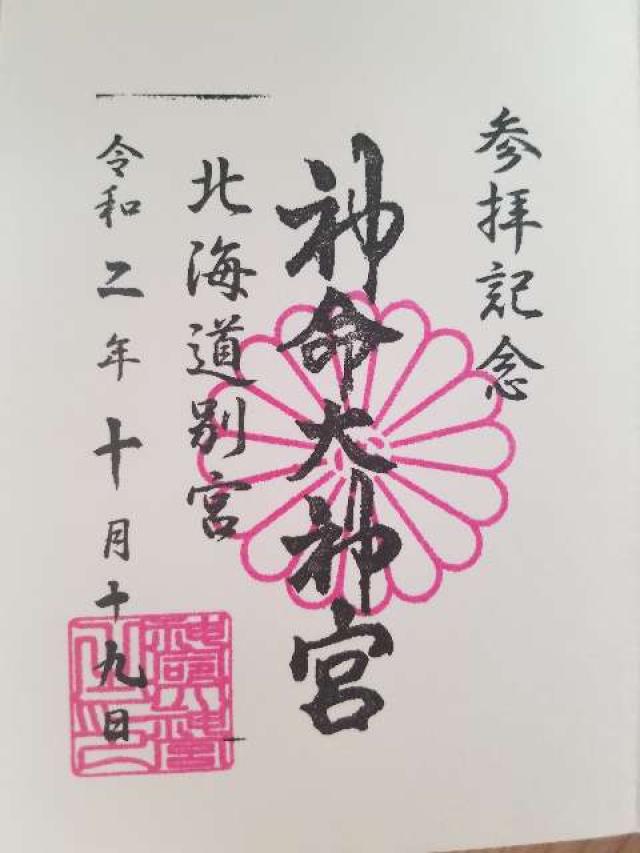 参拝記念
神命大神宮
北海道別宮
令和二年十月十九日